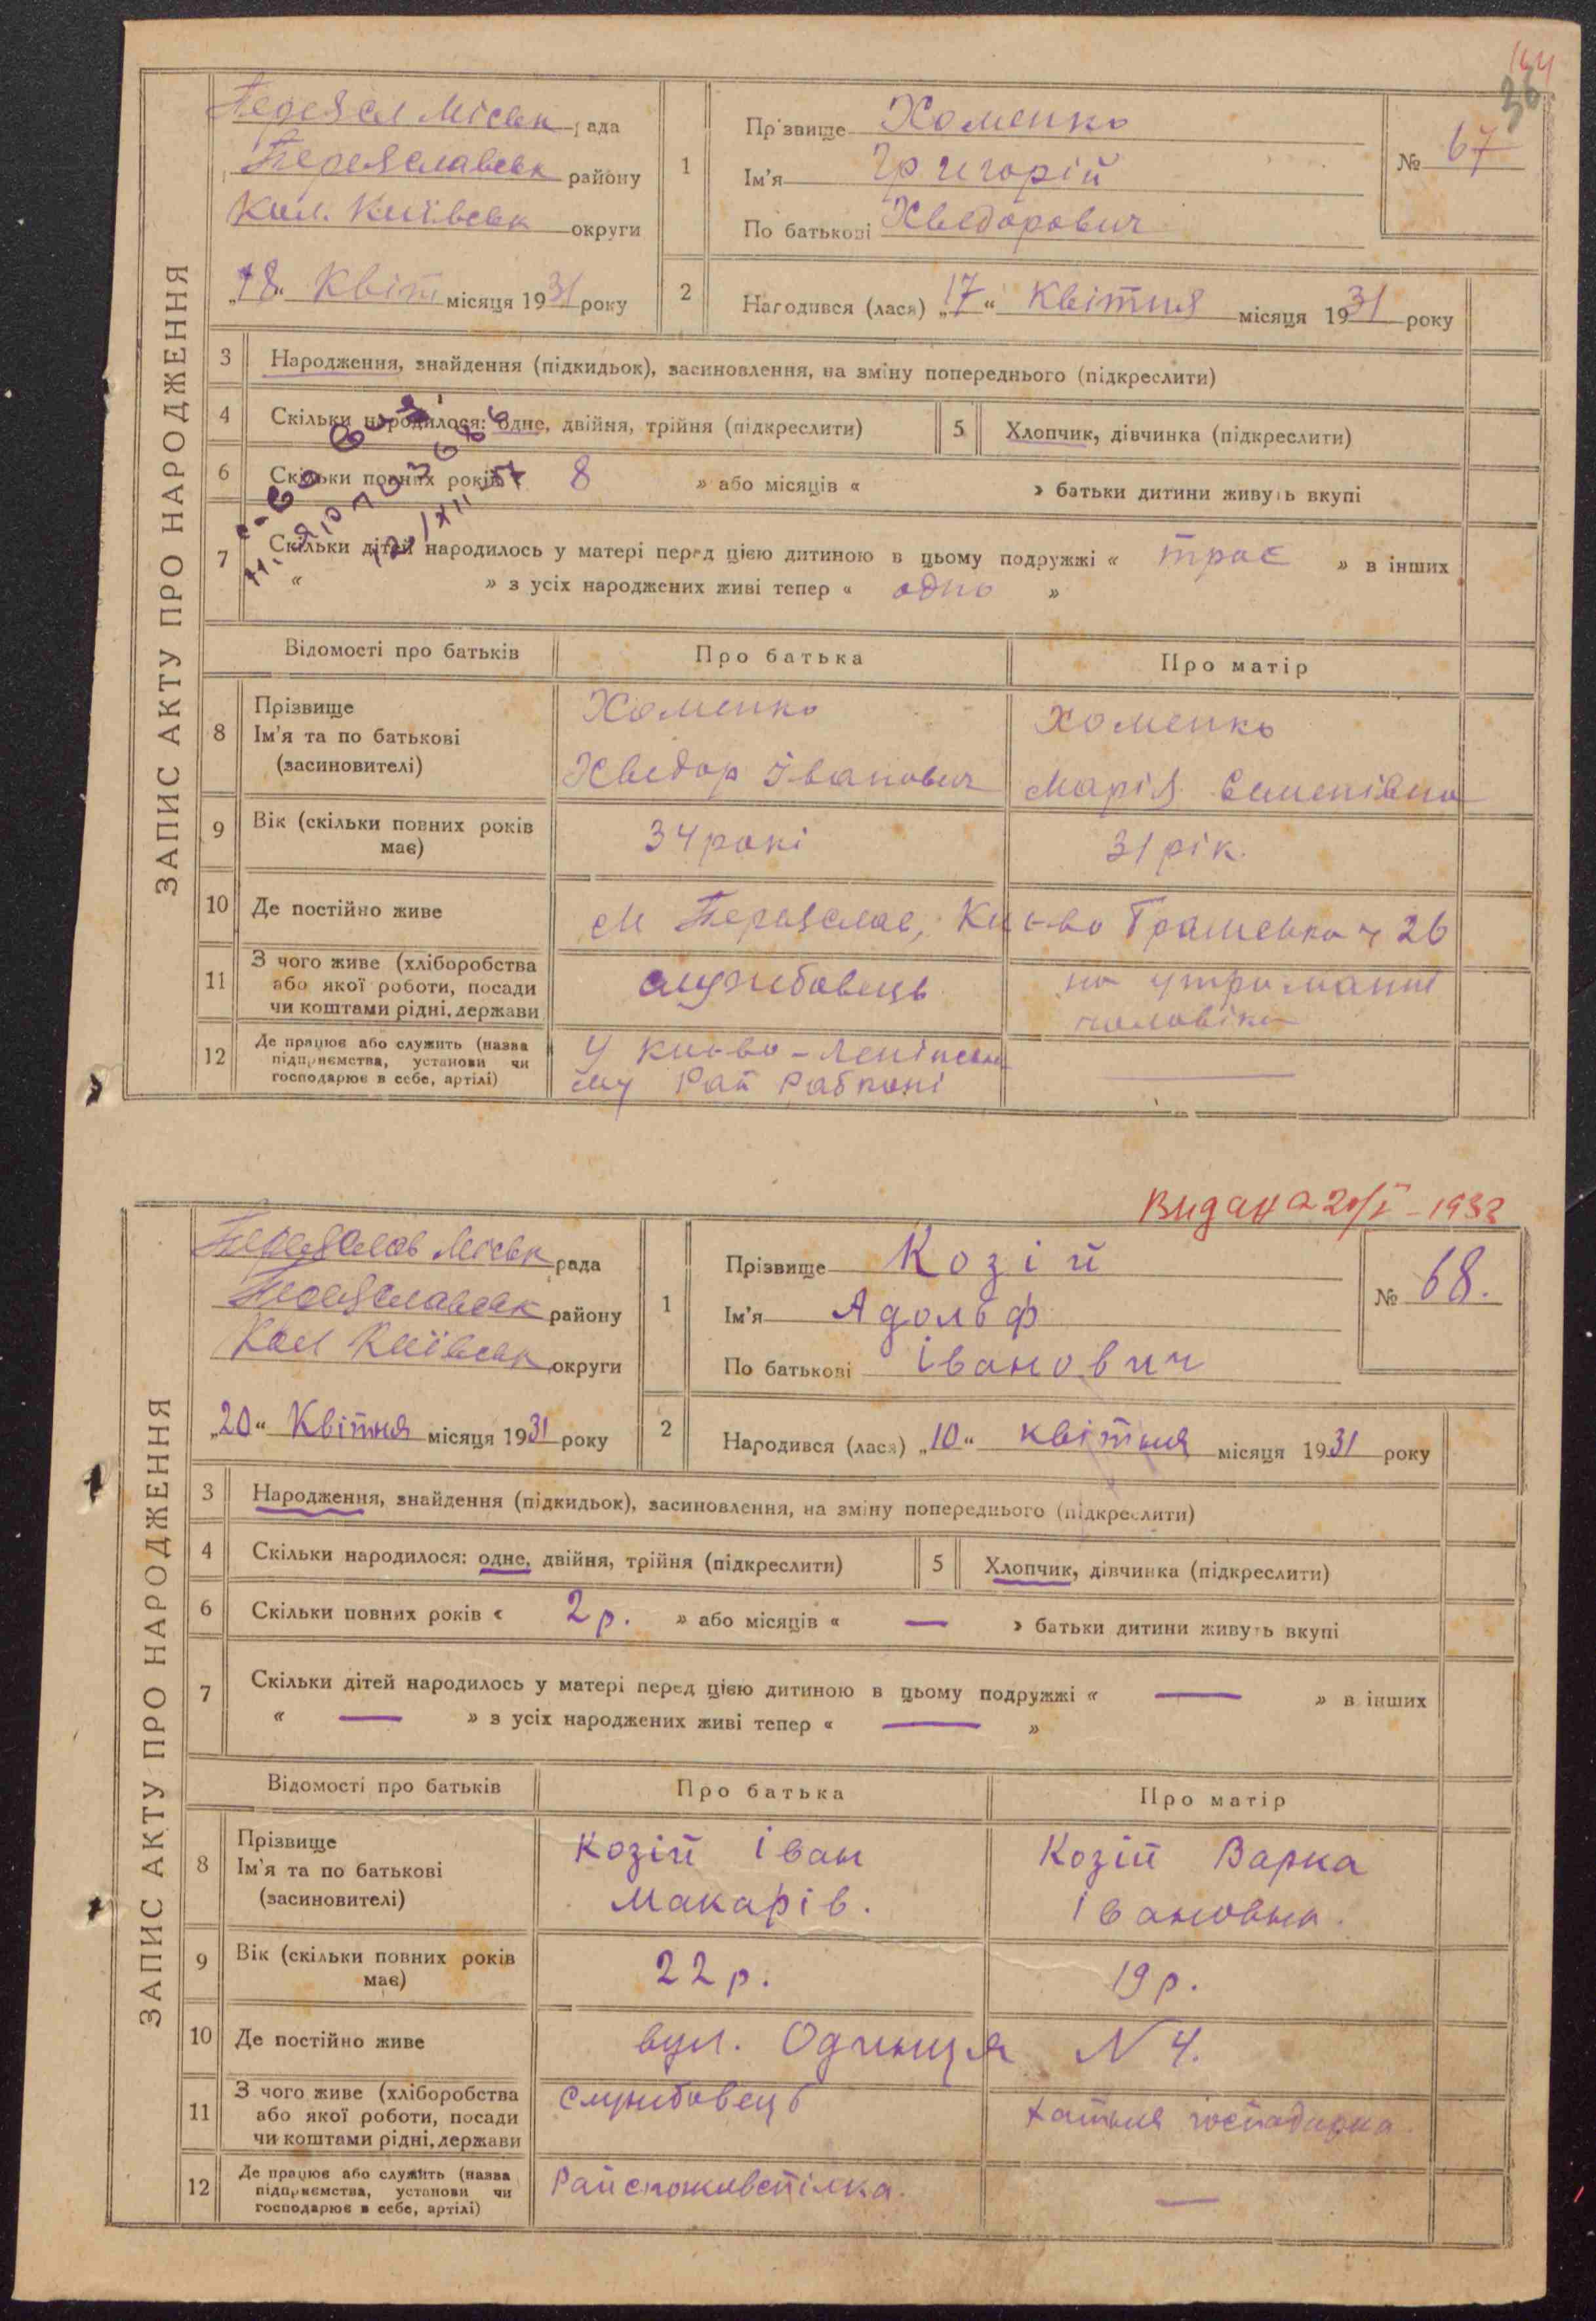 164
36
ЗАПИС АКТУ ПРО НАРОДЖЕННЯ
Переясл Міськ рада
Переяславськ району
Кол. Київськ округи
„18“ Квітн місяця 1931 року
1
Прізвище Хоменко
Ім'я Григорій
По батькові Хведорович
№ 67
2
Народився (лася) „17“ Квітня місяця 1931 року
3 Народження, знайдення (підкидьок), засиновлення, на зміну попереднього (підкреслити)
4 Скільки народилося: одне, двійня, трійня (підкреслити)
5 Хлопчик, дівчинка (підкреслити)
6 Скільки повних років 8 » або місяців « » батьки дитини живуть вкупі
7 Скільки дітей народилось у матері перед цією дитиною в цьому подружжі « троє » в інших
« » з усіх народжених живі тепер « одно »
Відомості про батьків Про батька Про матір
8 Прізвище
Ім'я та по батькові
(засиновителі)
Хоменко
Хведор Іванович
Хоменко
Марія Семенівна
9 Вік (скільки повних років має)
34 рокі
31 рік.
10 Де постійно живе
м Переяслав,
26
11 З чого живе (хліборобства
або якої роботи, посади
чи коштами рідні, держави
службовець
на утриманні
чоловіка
12 Де працює або служить (назва
підприємства, установи чи
господарює в себе, артілі)
У Києво-Ленінсько
му Рай Рабкопі
Видана 20/І - 1932
ЗАПИС АКТУ ПРО НАРОДЖЕННЯ
Переяслав Міськ рада
Переяславськ району
Кол Київськ округи
„20“ Квітня місяця 1931 року
1
Прізвище Козій
Ім'я Адольф
По батькові Іванович
№ 68.
2
Народився (лася) „10“ квітня місяця 1931 року
3 Народження, знайдення (підкидьок), засиновлення, на зміну попереднього (підкреслити)
4 Скільки народилося: одне, двійня, трійня (підкреслити)
5 Хлопчик, дівчинка (підкреслити)
6 Скільки повних років « 2 р. » або місяців « — » батьки дитини живуть вкупі
7 Скільки дітей народилось у матері перед цією дитиною в цьому подружжі « — » в інших
« — » з усіх народжених живі тепер « — »
Відомості про батьків Про батька Про матір
8 Прізвище
Ім'я та по батькові
(засиновителі)
Козій Іван
Макарів.
Козій Варка
Івановна.
9 Вік (скільки повних років має)
22 р.
19 р.
10 Де постійно живе
вул. Одинця N 4.
11 З чого живе (хліборобства
або якої роботи, посади
чи коштами рідні, держави
Службовець
хатня господарка
12 Де працює або служить (назва
підприємства, установи чи
господарює в себе, артілі)
Райспоживспілка.
—